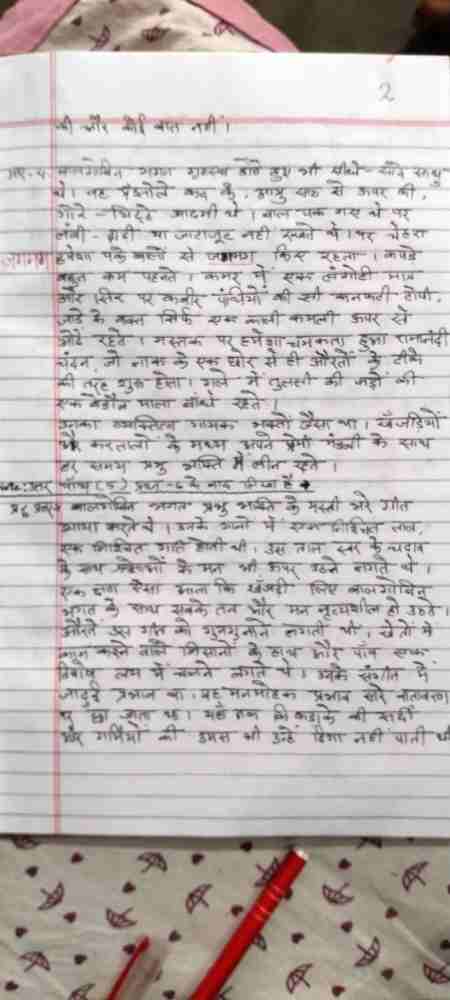 2
की और कोई बात नहीं।
बालगोबिन भगत गृहस्थ होते हुए भी सीधे-सादे साधु
थे। वह मँझोले कद के, आयु साठ से ऊपर की,
गोरे-चिट्टे आदमी थे। बाल पक गए थे पर
लंबी-दाढ़ी या जटाजूट नहीं रखते थे। पर चेहरा
हमेशा पके बालों से जगमग किए रहता। कपड़े
बहुत कम पहनते। कमर में एक लंगोटी मात्र
और सिर पर कबीर पंथियों की सी कनफटी टोपी,
जाड़े के वक्त सिर्फ एक काली कमली ऊपर से
ओढे रहते। मस्तक पर हमेशा चमकता हुआ रामानंदी
चंदन, जो नाक के एक छोर से ही औरतों के टीके
की तरह शुरू होता। गले में तुलसी की जड़ों की
एक बेडौल माला बाँधे रहते।
उनका व्यक्तित्व गायक भक्तो जैसा था। खँजड़ियों
और करतालों के मध्य अपने प्रेमी मंडली के साथ
हर समय प्रभु भक्ति में लीन रहते।
उत्तर पाँच (5) प्रश्न-6 के बाद लिखा है
बालगोबिन भगत प्रभु भक्ति के मस्ती भरे गीत
गाया करते थे। उनके गानों में एक निश्चित ताल,
एक निश्चित गति होती थी। उस ताल स्वर के चढ़ाव
के साथ श्रोताओं के मन भी ऊपर उठने लगते थे।
एक क्षण ऐसा आता कि खँजड़ी लिए बालगोबिन
भगत के साथ सबके तन और मन नृत्यशील हो उठते।
औरतें उस गीत को गुनगुनाने लगती थी, खेतों में
काम करने वाले किसानों के हाथ और पाँव एक
विशेष लय में चलने लगते थे। उनके संगीत में
जादुई प्रभाव था। वह मनमोहक प्रभाव सारे वातावरण
पर छा जाता था। यहाँ तक कि कड़ाके की सर्दी
और गर्मियों की उमस भी उन्हें डिगा नहीं पाती थी